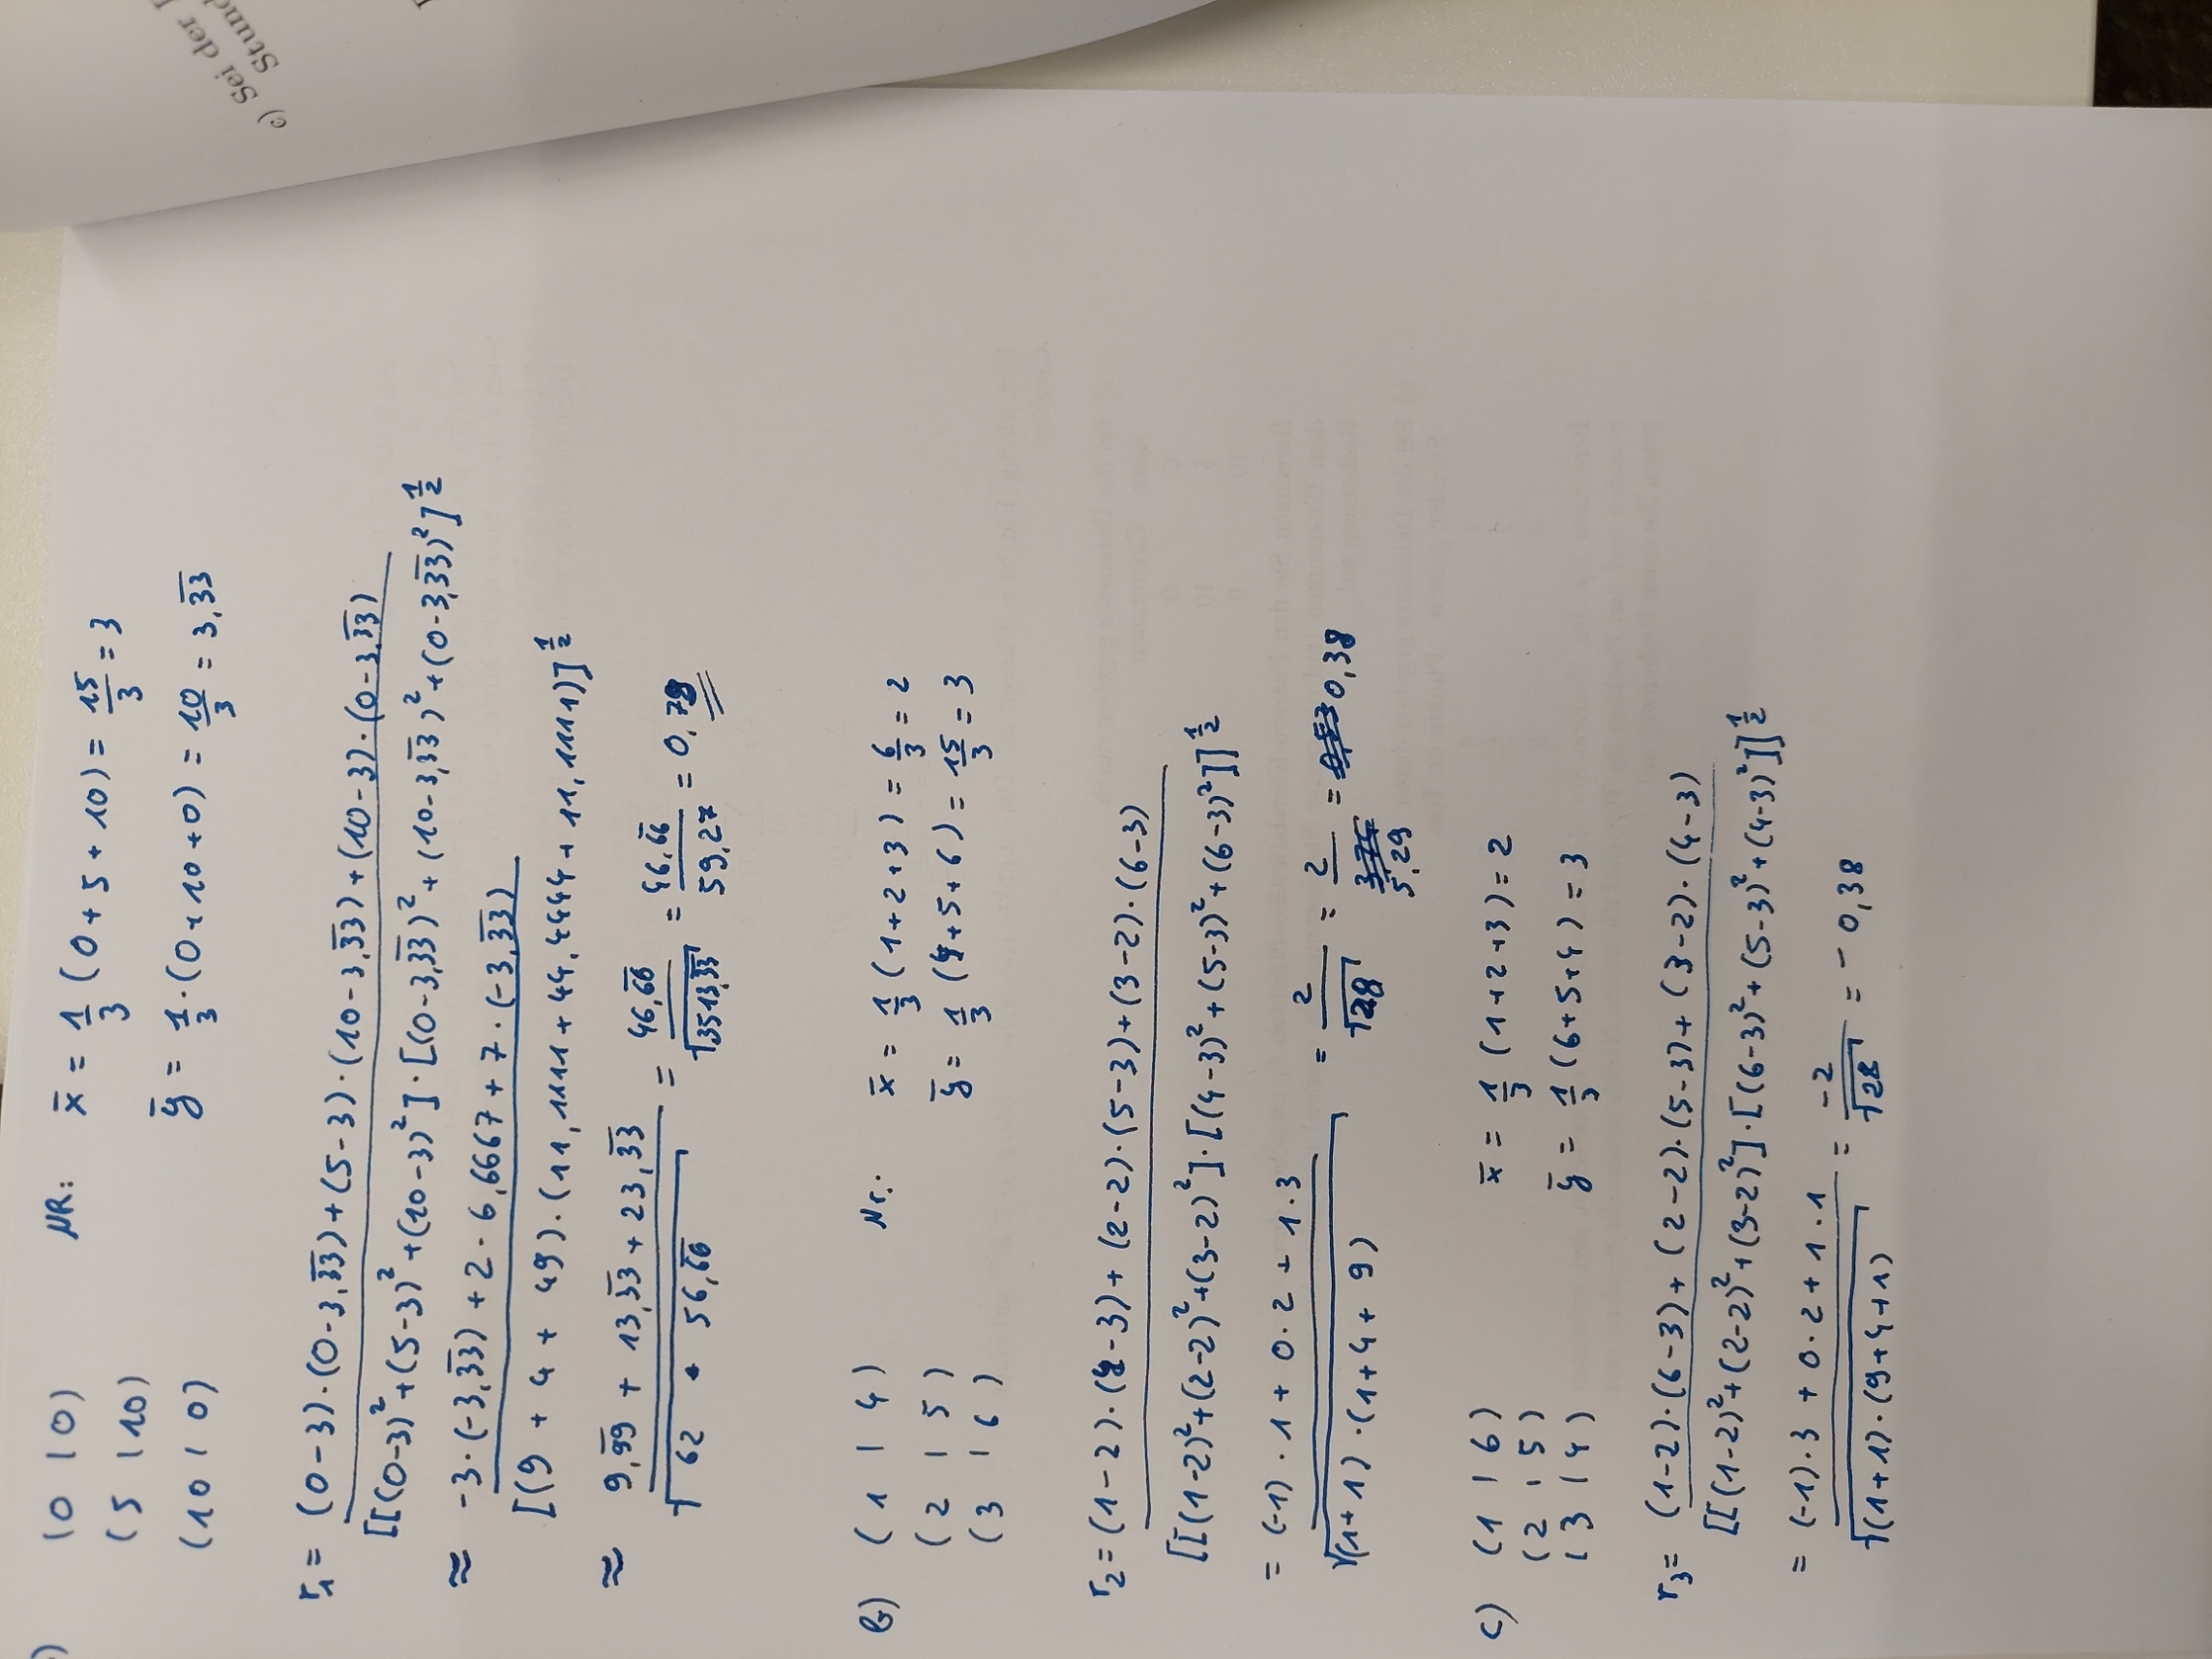 (0 | 0) NR: x̄ = 1/3 (0 + 5 + 10) = 15/3 = 3
(5 | 10)
(10 | 0) ȳ = 1/3 · (0 + 10 + 0) = 10/3 = 3,3̅3̅
r₁ = (0 - 3) · (0 - 3,3̅3̅) + (5 - 3) · (10 - 3,3̅3̅) + (10 - 3) · (0 - 3,3̅3̅)
[[(0-3)² + (5-3)² + (10-3)²] · [(0-3,3̅3̅)² + (10-3,3̅3̅)² + (0-3,3̅3̅)²]^1/2
≈ -3 · (-3,3̅3̅) + 2 · 6,6667 + 7 · (-3,3̅3̅)
[(9 + 4 + 49) · (11,1111 + 44,4444 + 11,1111)]^1/2
≈ 9,9̅9̅ + 13,3̅3̅ + 23,3̅3̅ / √62 · 56,6̅6̅ = 46,6̅6̅ / √3513,3̅3̅ = 46,6̅6̅ / 59,27 = 0,79
b) (1 | 4) Nr.: x̄ = 1/3 (1 + 2 + 3) = 6/3 = 2
(2 | 5) ȳ = 1/3 (4 + 5 + 6) = 15/3 = 3
(3 | 6)
r₂ = (1 - 2) · (4 - 3) + (2 - 2) · (5 - 3) + (3 - 2) · (6 - 3)
[[(1-2)² + (2-2)² + (3-2)²] · [(4-3)² + (5-3)² + (6-3)²]]^1/2
= (-1) · 1 + 0 · 2 + 1 · 3 / √(1 + 1) · (1 + 4 + 9) = 2 / √28 = 2 / 5,29 = 0,38
c) (1 | 6) x̄ = 1/3 (1 + 2 + 3) = 2
(2 | 5)
(3 | 4) ȳ = 1/3 (6 + 5 + 4) = 3
r₃ = (1-2) · (6-3) + (2-2) · (5-3) + (3-2) · (4-3)
[[(1-2)² + (2-2)² + (3-2)²] · [(6-3)² + (5-3)² + (4-3)²]]^1/2
= (-1) · 3 + 0 · 2 + 1 · 1 / √(1+1) · (9+4+1) = -2 / √28 = - 0,38
c) Sei der